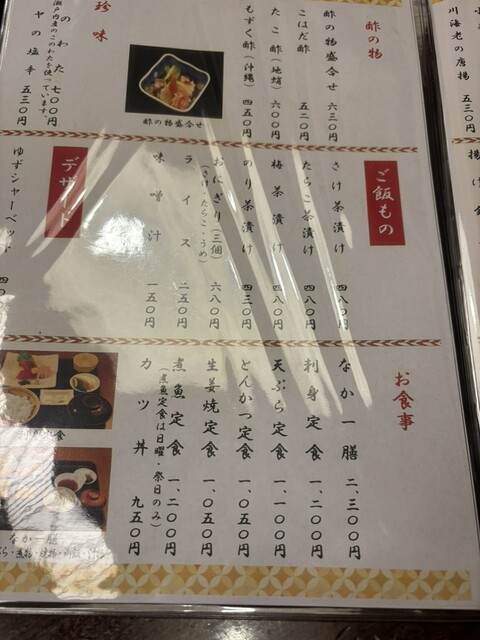 川海老の唐揚 五三〇円
酢の物
酢の物盛合せ 六三〇円
こはだ酢 五二〇円
たこ酢(地蛸) 六〇〇円
もずく酢(沖縄) 四五〇円
酢の物盛合せ
珍味
このわた 七〇〇円
瀬戸内産のこのわたを使っています。
ヤの塩辛 五三〇円
ご飯もの
さけ茶漬け 四八〇円
たらこ茶漬け 四八〇円
梅茶漬け 四八〇円
のり茶漬け 四三〇円
おにぎり(三個) 六八〇円
(さけ・たらこ・うめ)
ライス 二五〇円
味噌汁 一五〇円
デザート
ゆずシャーベット
お食事
なか一膳 二、三〇〇円
刺身定食 一、二〇〇円
天ぷら定食 一、一〇〇円
とんかつ定食 一、〇五〇円
生姜焼定食 一、〇五〇円
煮魚定食 一、二〇〇円
(煮魚定食は日曜・祭日のみ)
カツ丼 九五〇円
定食
なか一膳